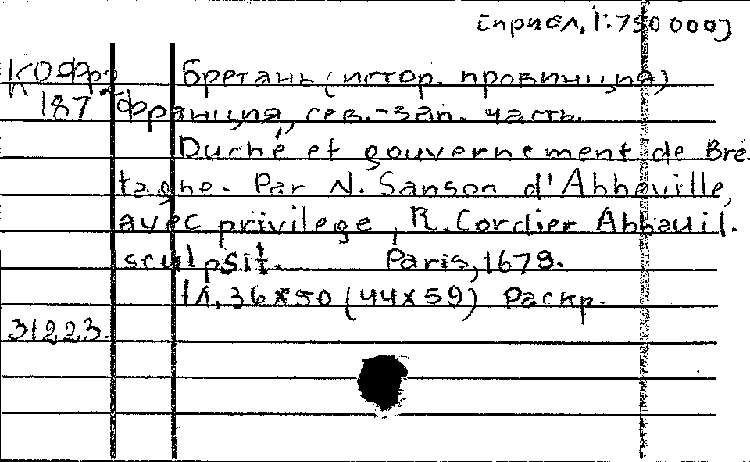 [прибл. 1:750 000]
К0Фр2 Бретань (истор. провинция)
187 Франция, сев.-зап. часть.
Duché et gouvernement de Bre
tagne. Par N. Sanson d'Abbeville,
avec privilege, R. Cordier Abbavil.
sculpsit. Paris, 1679.
1л. 36x50 (44x59) Раскр.
31223.